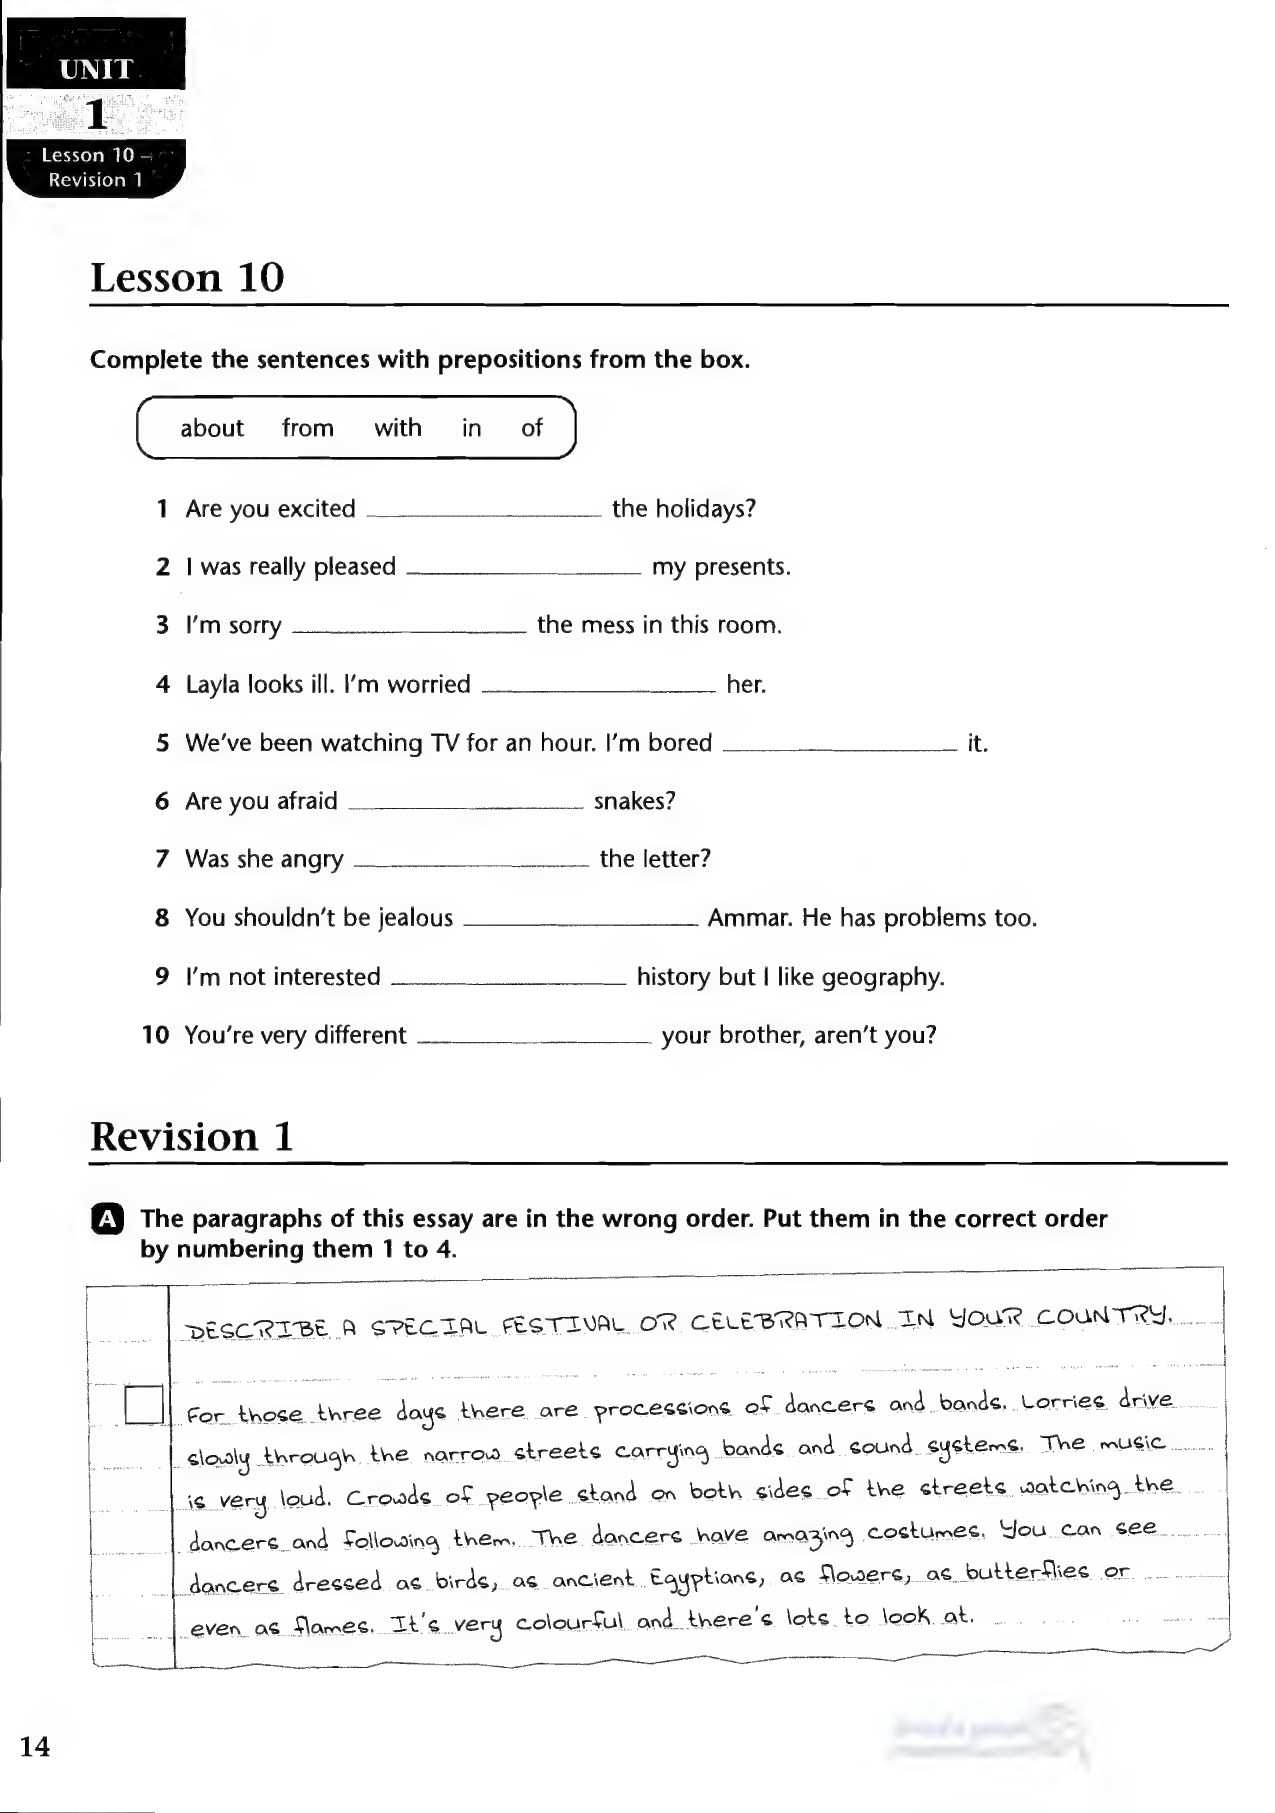 UNIT
1
Lesson 10 –
Revision 1
Lesson 10
Complete the sentences with prepositions from the box.
about from with in of
1 Are you excited ____________ the holidays?
2 I was really pleased ____________ my presents.
3 I'm sorry ____________ the mess in this room.
4 Layla looks ill. I'm worried ____________ her.
5 We've been watching TV for an hour. I'm bored ____________ it.
6 Are you afraid ____________ snakes?
7 Was she angry ____________ the letter?
8 You shouldn't be jealous ____________ Ammar. He has problems too.
9 I'm not interested ____________ history but I like geography.
10 You're very different ____________ your brother, aren't you?
Revision 1
A The paragraphs of this essay are in the wrong order. Put them in the correct order
by numbering them 1 to 4.
DESCRIBE A SPECIAL FESTIVAL OR CELEBRATION IN YOUR COUNTRY.
For those three days there are processions of dancers and bands. Lorries drive
slowly through the narrow streets carrying bands and sound systems. The music
is very loud. Crowds of people stand on both sides of the streets watching the
dancers and following them. The dancers have amazing costumes. You can see
dancers dressed as birds, as ancient Egyptians, as flowers, as butterflies or
even as flames. It's very colourful and there's lots to look at.
14